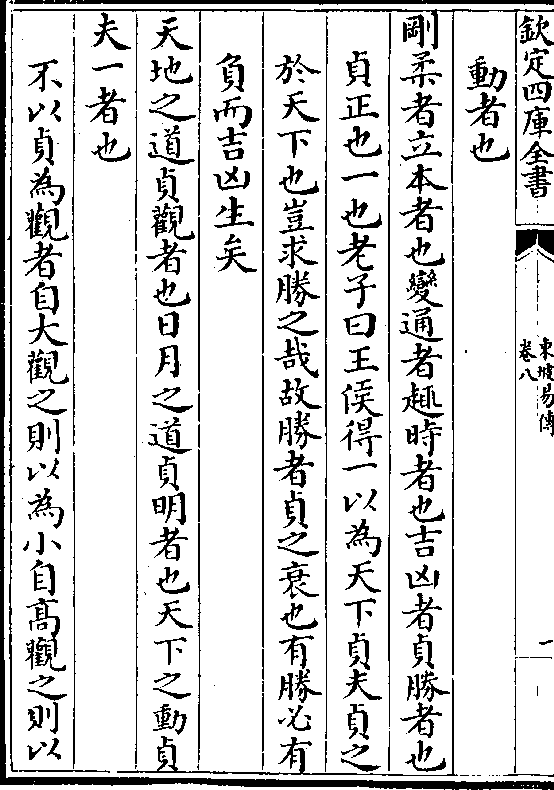 欽定四庫全書
東坡易傳
卷八
一
動者也
剛柔者立本者也變通者趣時者也吉凶者貞勝者也
貞正也一也老子曰王侯得一以為天下貞夫貞之
於天下也豈求勝之哉故勝者貞之衰也有勝必有
負而吉凶生矣
天地之道貞觀者也日月之道貞明者也天下之動貞
夫一者也
不以貞為觀者自大觀之則以為小自髙觀之則以